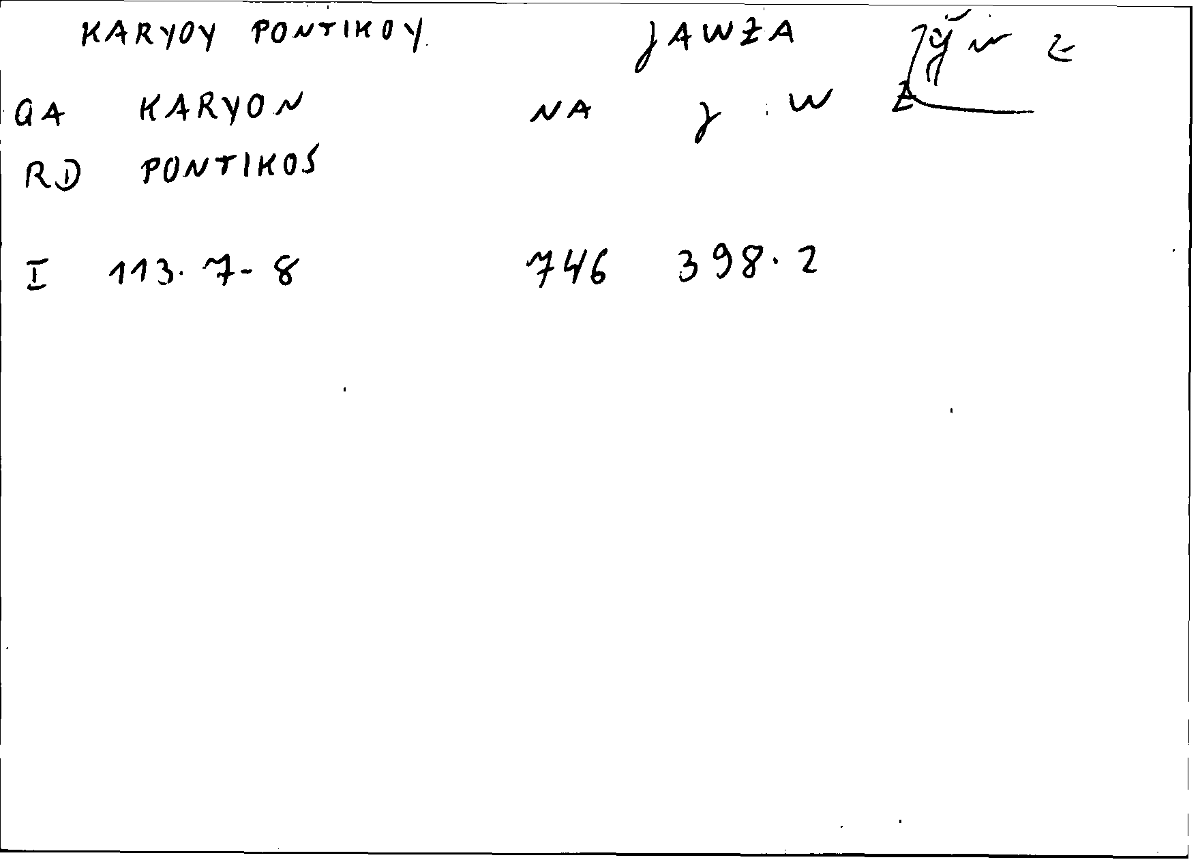 KARYOY PONTIKOY JAWZA
QA KARYON NA J W Z
RD PONTIKOS
I 113.7-8 746 398.2